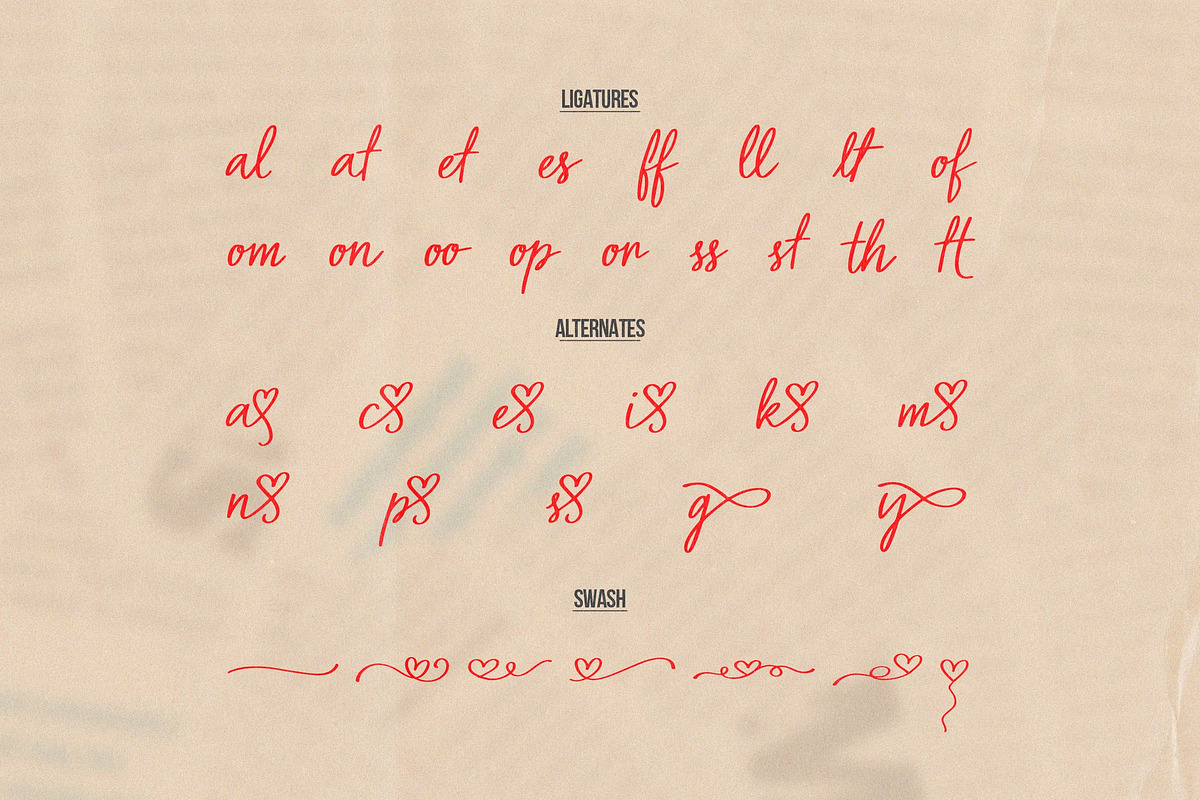 LIGATURES
al at et es ff ll lt of
om on oo op or ss st th tt
ALTERNATES
a c e i k m
n p s g y
SWASH